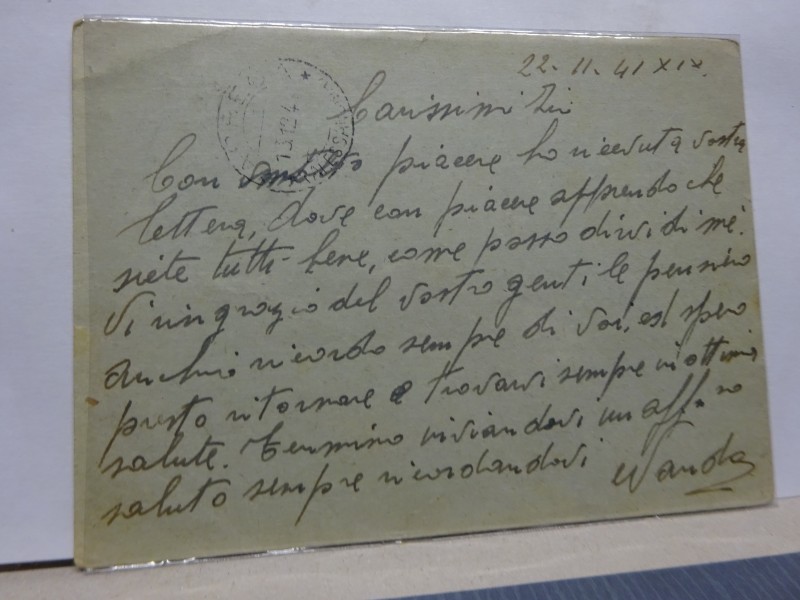 22-11-41 XIX.
Carissimi Zii
Con molto piacere ho ricevuta vostra
lettera, dove con piacere apprendo che
siete tutti bene, come posso dirvi di me.
Vi ringrazio del vostro gentile pensiero
anch'io ricordo sempre di voi, ed spero
presto ritornare e trovarvi sempre in ottima
salute. Termino inviandovi un aff. mo
saluto sempre ricordandovi